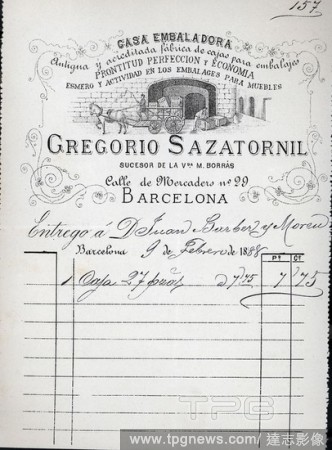 157
CASA EMBALADORA
Antigua y acreditada fábrica de cajas para embalajes
PRONTITUD PERFECCION Y ECONOMIA
ESMERO Y ACTIVIDAD EN LOS EMBALAGES PARA MUEBLES
GREGORIO SAZATORNIL
SUCESOR DE LA Vda M. BORRÁS
Calle de Mercaders nº 29
BARCELONA
Entrego á D. Juan
Barcelona 9 de Febrero de 1888
Ps. Cs.
1 Caja 27 á 7,75 7 75
TPG
www.tpgnews.com / 達志影像